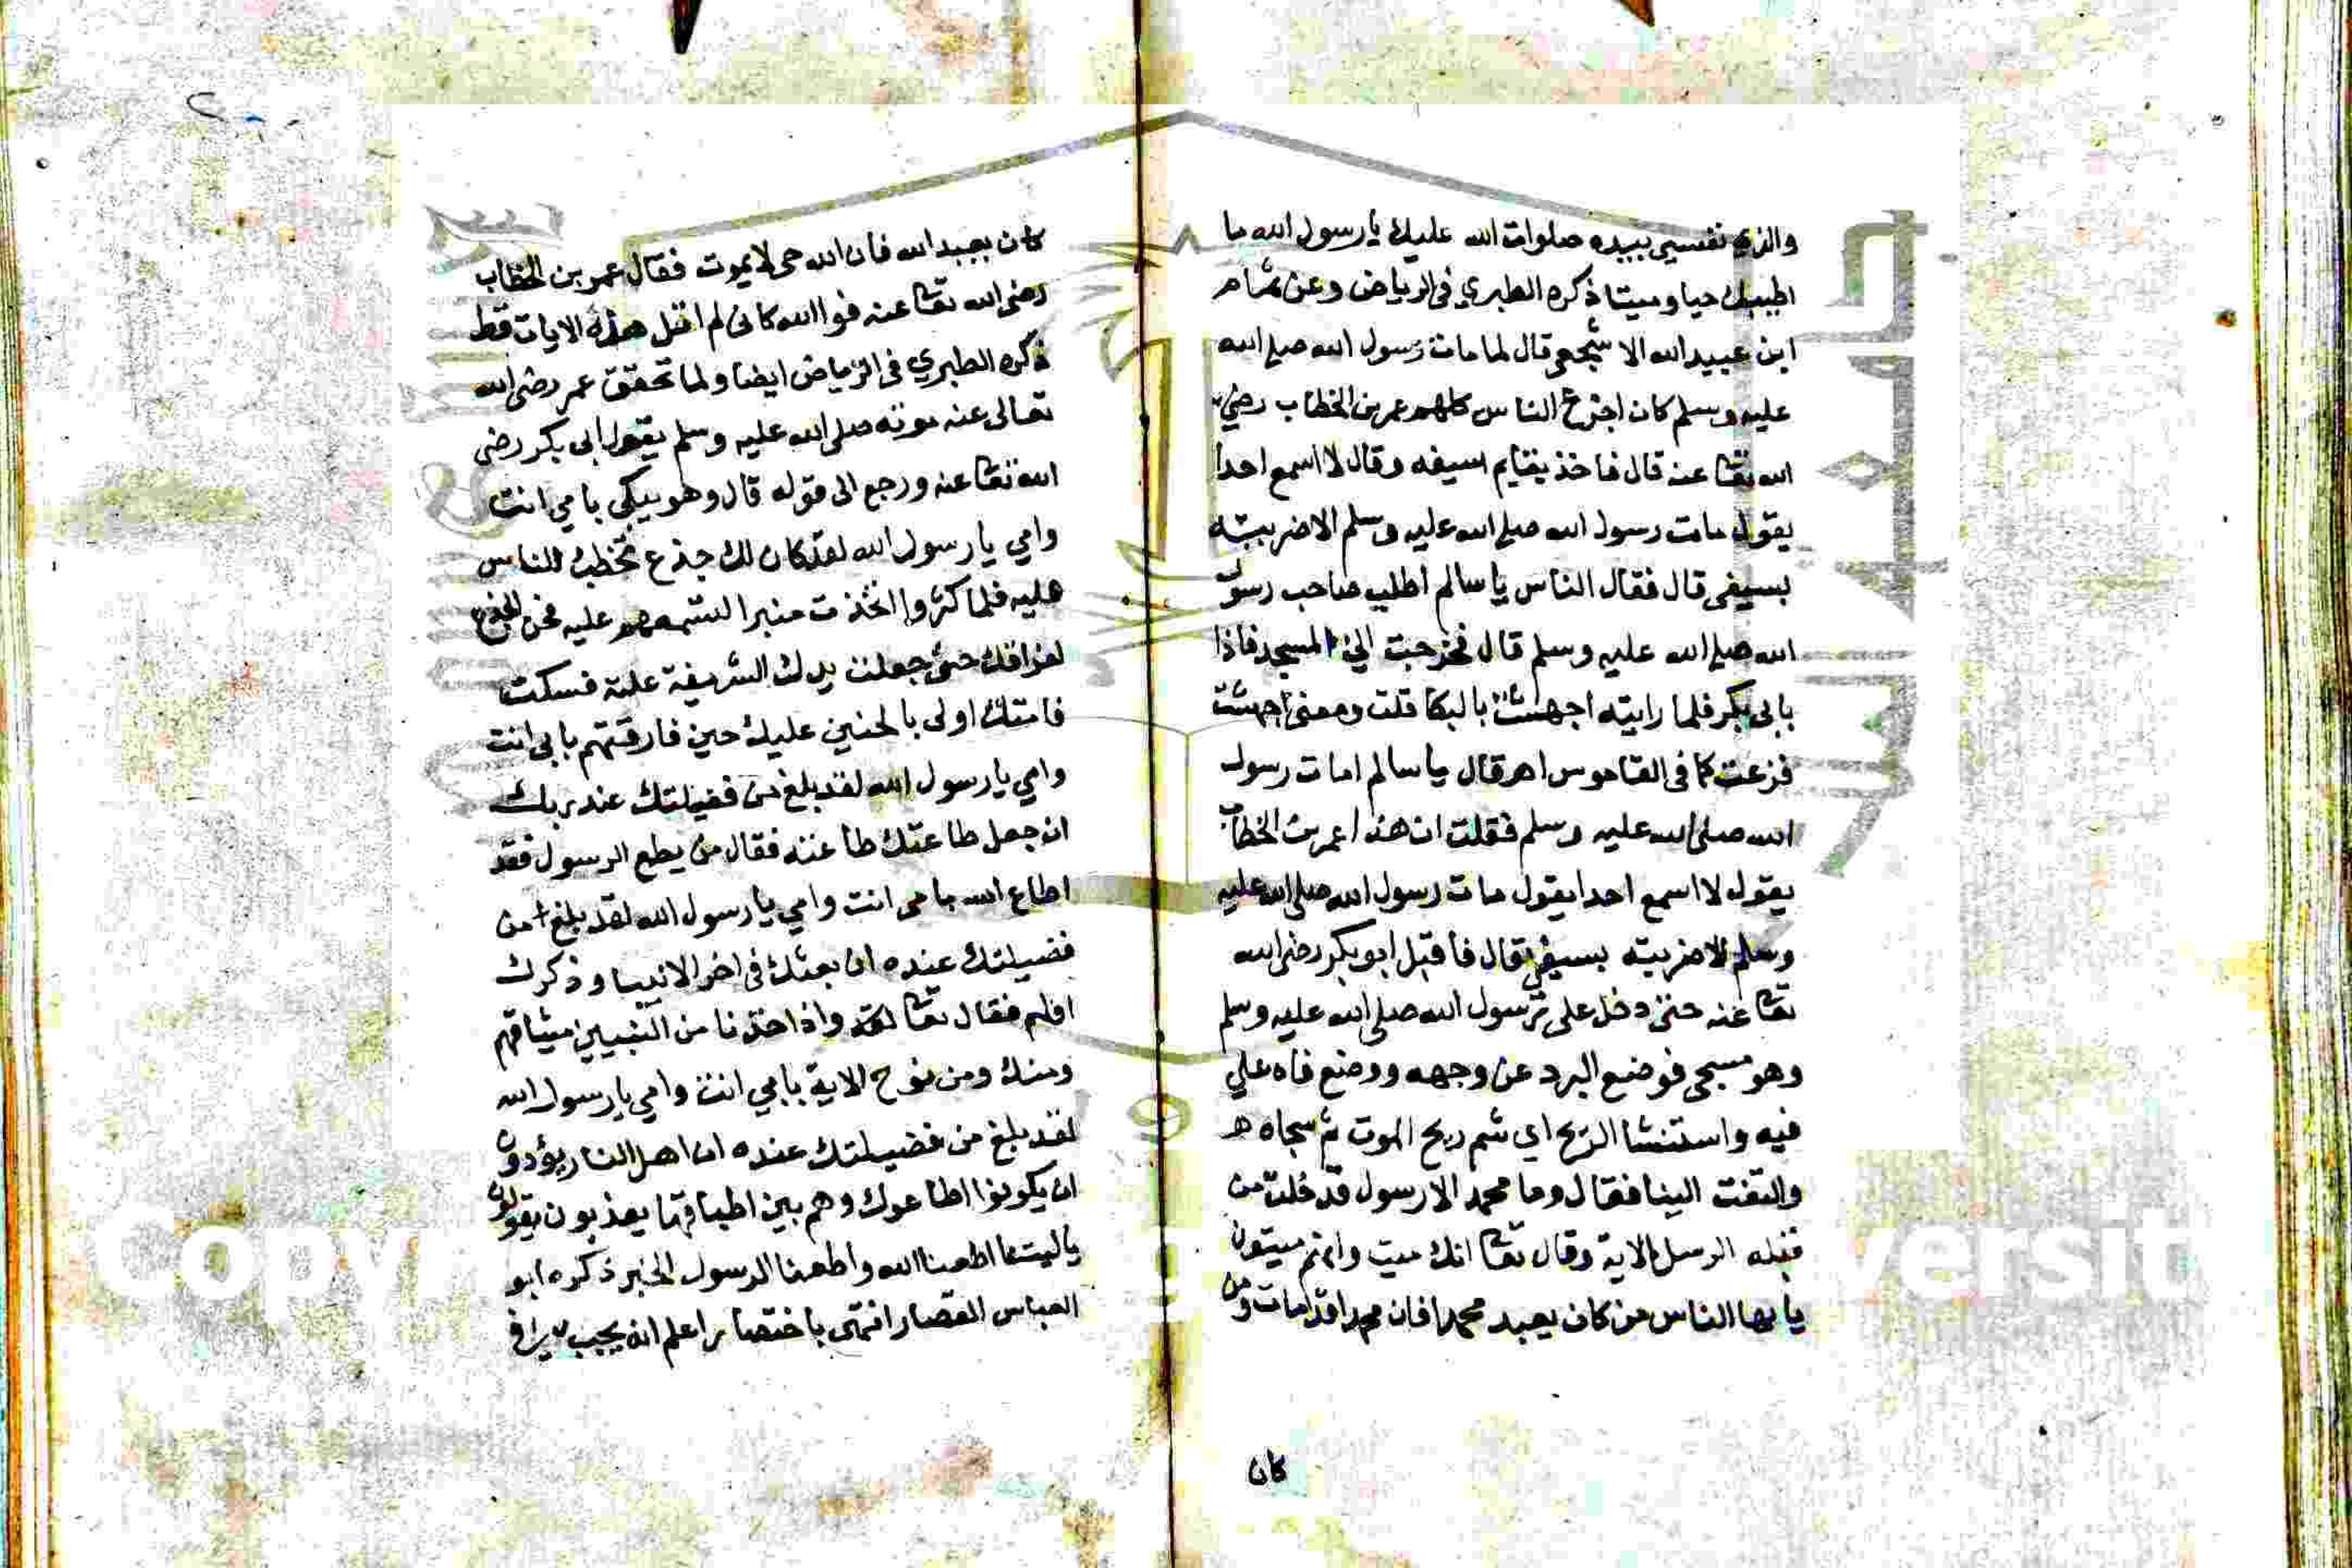 والذي نفسي بيده صلوات الله عليك يا رسول الله ما
اطيبك حيا وميتا ذكره الطبري في الرياض وعن
ابن عبيد الله الاشجعي قال لما مات رسول الله صلى الله
عليه وسلم كان اجزع الناس كلهم عمر بن الخطاب رضي
الله تعا عنه قال فاخذ بقايم سيفه وقال لا اسمع احدا
يقول مات رسول الله صلى الله عليه وسلم الا ضربته
بسيفي قال فقال الناس يا سالم اطلب صاحب رسول
الله صلى الله عليه وسلم قال فخرجت الى المسجد فاذا
بابي بكر فلما رايته اجهشت بالبكا قلت ومعنى اجهشت
فزعت كما في القاموس اهـ قال يا سالم امات رسول
الله صلى الله عليه وسلم فقلت ان هذا عمر بن الخطاب
يقول لا اسمع احدا يقول مات رسول الله صلى الله عليه
وسلم الا ضربته بسيفي قال فاقبل ابو بكر رضى الله
تعا عنه حتى دخل على رسول الله صلى الله عليه وسلم
وهو مسجى فوضع البرد عن وجهه ووضع فاه على
فيه واستنشا الريح اي شم ريح الموت ثم سجاه
والتفت الينا فقال وما محمد الا رسول قد خلت من
قبله الرسل الاية وقال تعا انك ميت وانهم ميتون
يا ايها الناس من كان يعبد محمدا فان محمدا قد مات ومن
كان
كان يعبد الله فان الله حى لا يموت فقال عمر بن الخطاب
رضى الله تعا عنه فوالله كانى لم اتل هذه الايات قط
ذكره الطبري في الرياض ايضا ولما تحقق عمر رضى الله
تعالى عنه موته صلى الله عليه وسلم بقول ابى بكر رضى
الله تعا عنه ورجع الى قوله قال وهو يبكي بابي انت
وامي يا رسول الله لقد كان لك جذع تخطب الناس
عليه فلما كثروا اتخذت منبرا لتسمعهم عليه فحن الجذع
لفراقك حتى جعلت يدك الشريفة عليه فسكت
فامتك اولى بالحنين عليك حين فارقتهم بابي انت
وامي يا رسول الله لقد بلغ من فضيلتك عند ربك
ان جعل طاعتك طاعته فقال من يطع الرسول فقد
اطاع الله بابى انت وامي يا رسول الله لقد بلغ من
فضيلتك عنده ان بعثك في اخر الانبيا وذكرك
اولهم فقال تعا واذ اخذنا من النبيين ميثاقهم
ومنك ومن نوح الاية بابي انت وامي يا رسول الله
لقد بلغ من فضيلتك عنده ان اهل النار يودون
ان يكونوا اطاعوك وهم بين اطباقها يعذبون يقولون
يا ليتنا اطعنا الله واطعنا الرسول الخبر ذكره ابو
العباس القصار انتهى باختصار اعلم انه يجب